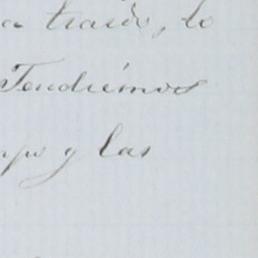 a traido, lo
Tendrémos
mpo y las